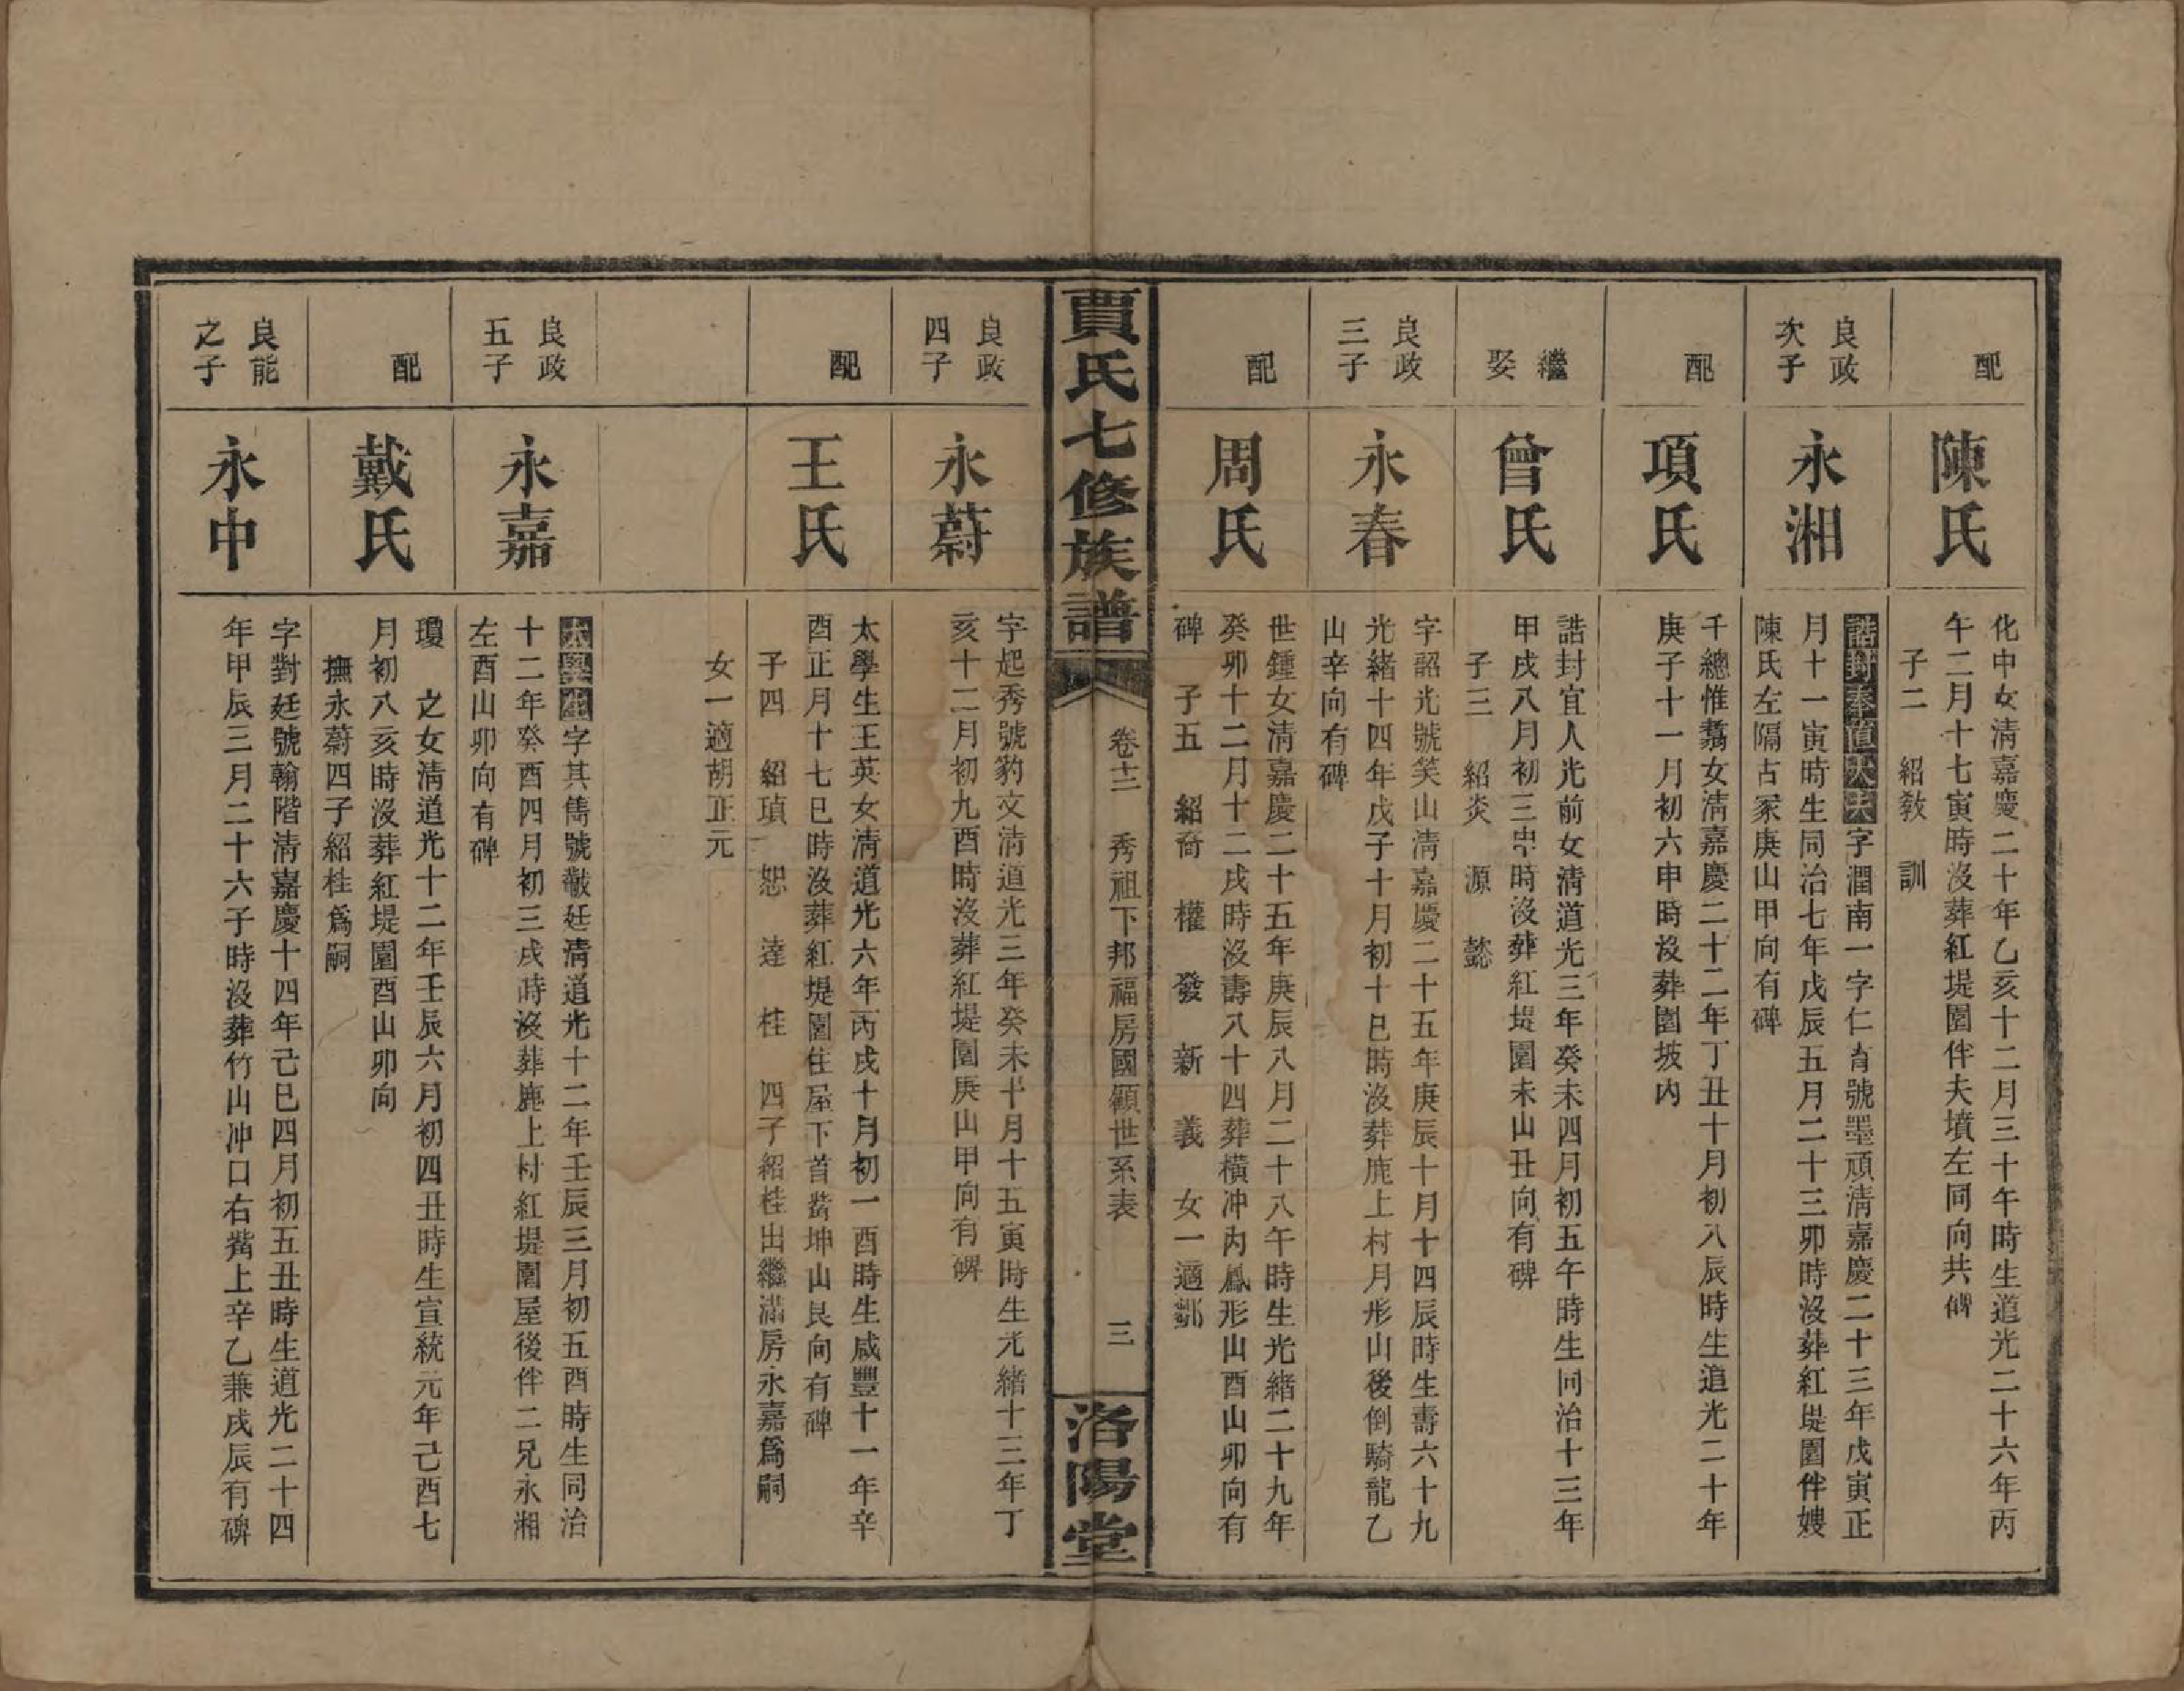 配
陳氏
化申女清嘉慶二十年乙亥十二月三十午時生道光二十六年丙
午二月十七寅時沒葬紅堤園伴夫墳左同向共碑
子二　紹教　訓
良政
次子
永湘
誥封奉直大夫字潤南一字仁育號墨頑清嘉慶二十三年戊寅正
月十一寅時生同治七年戊辰五月二十三卯時沒葬紅堤園伴嫂
陳氏左隔古冢庚山甲向有碑
配
項氏
千總惟翥女清嘉慶二十二年丁丑十月初八辰時生道光二十年
庚子十一月初六申時沒葬園坡內
繼
娶
曾氏
誥封宜人光前女清道光三年癸未四月初五午時生同治十三年
甲戌八月初三申時沒葬紅堤園未山丑向有碑
子三　紹炎　源　懿
良政
三子
永春
字韶光號笑山清嘉慶二十五年庚辰十月十四辰時生壽六十九
光緒十四年戊子十月初十巳時沒葬鹿上村月形山後倒騎龍乙
山辛向有碑
配
周氏
世鍾女清嘉慶二十五年庚辰八月二十八午時生光緒二十九年
癸卯十二月十二戌時沒壽八十四葬橫冲內鳳形山酉山卯向有
碑　子五　紹裔　權　發　新　義　女一適鄒
賈氏七修族譜
卷十二　秀祖下邦福房國顧世系表
三
洛陽堂
良政
四子
永蔚
字起秀號豹文清道光三年癸未十月十五寅時生光緒十三年丁
亥十二月初九酉時沒葬紅堤園庚山甲向有碑
配
王氏
太學生王英女清道光六年丙戌十月初一酉時生咸豐十一年辛
酉正月十七巳時沒葬紅堤園住屋下首嘴坤山艮向有碑
子四　紹瑱　恕　達　桂　四子紹桂出繼滿房永嘉爲嗣
女一適胡正元
良政
五子
永嘉
太學生字其雋號黻廷清道光十二年壬辰三月初五酉時生同治
十二年癸酉四月初三戌時沒葬鹿上村紅堤園屋後伴二兄永湘
左酉山卯向有碑
配
戴氏
瓊　之女清道光十二年壬辰六月初四丑時生宣統元年己酉七
月初八亥時沒葬紅堤園酉山卯向
撫永蔚四子紹桂爲嗣
良能
之子
永中
字對廷號翰階清嘉慶十四年己巳四月初五丑時生道光二十四
年甲辰三月二十六子時沒葬竹山冲口右嘴上辛乙兼戌辰有碑